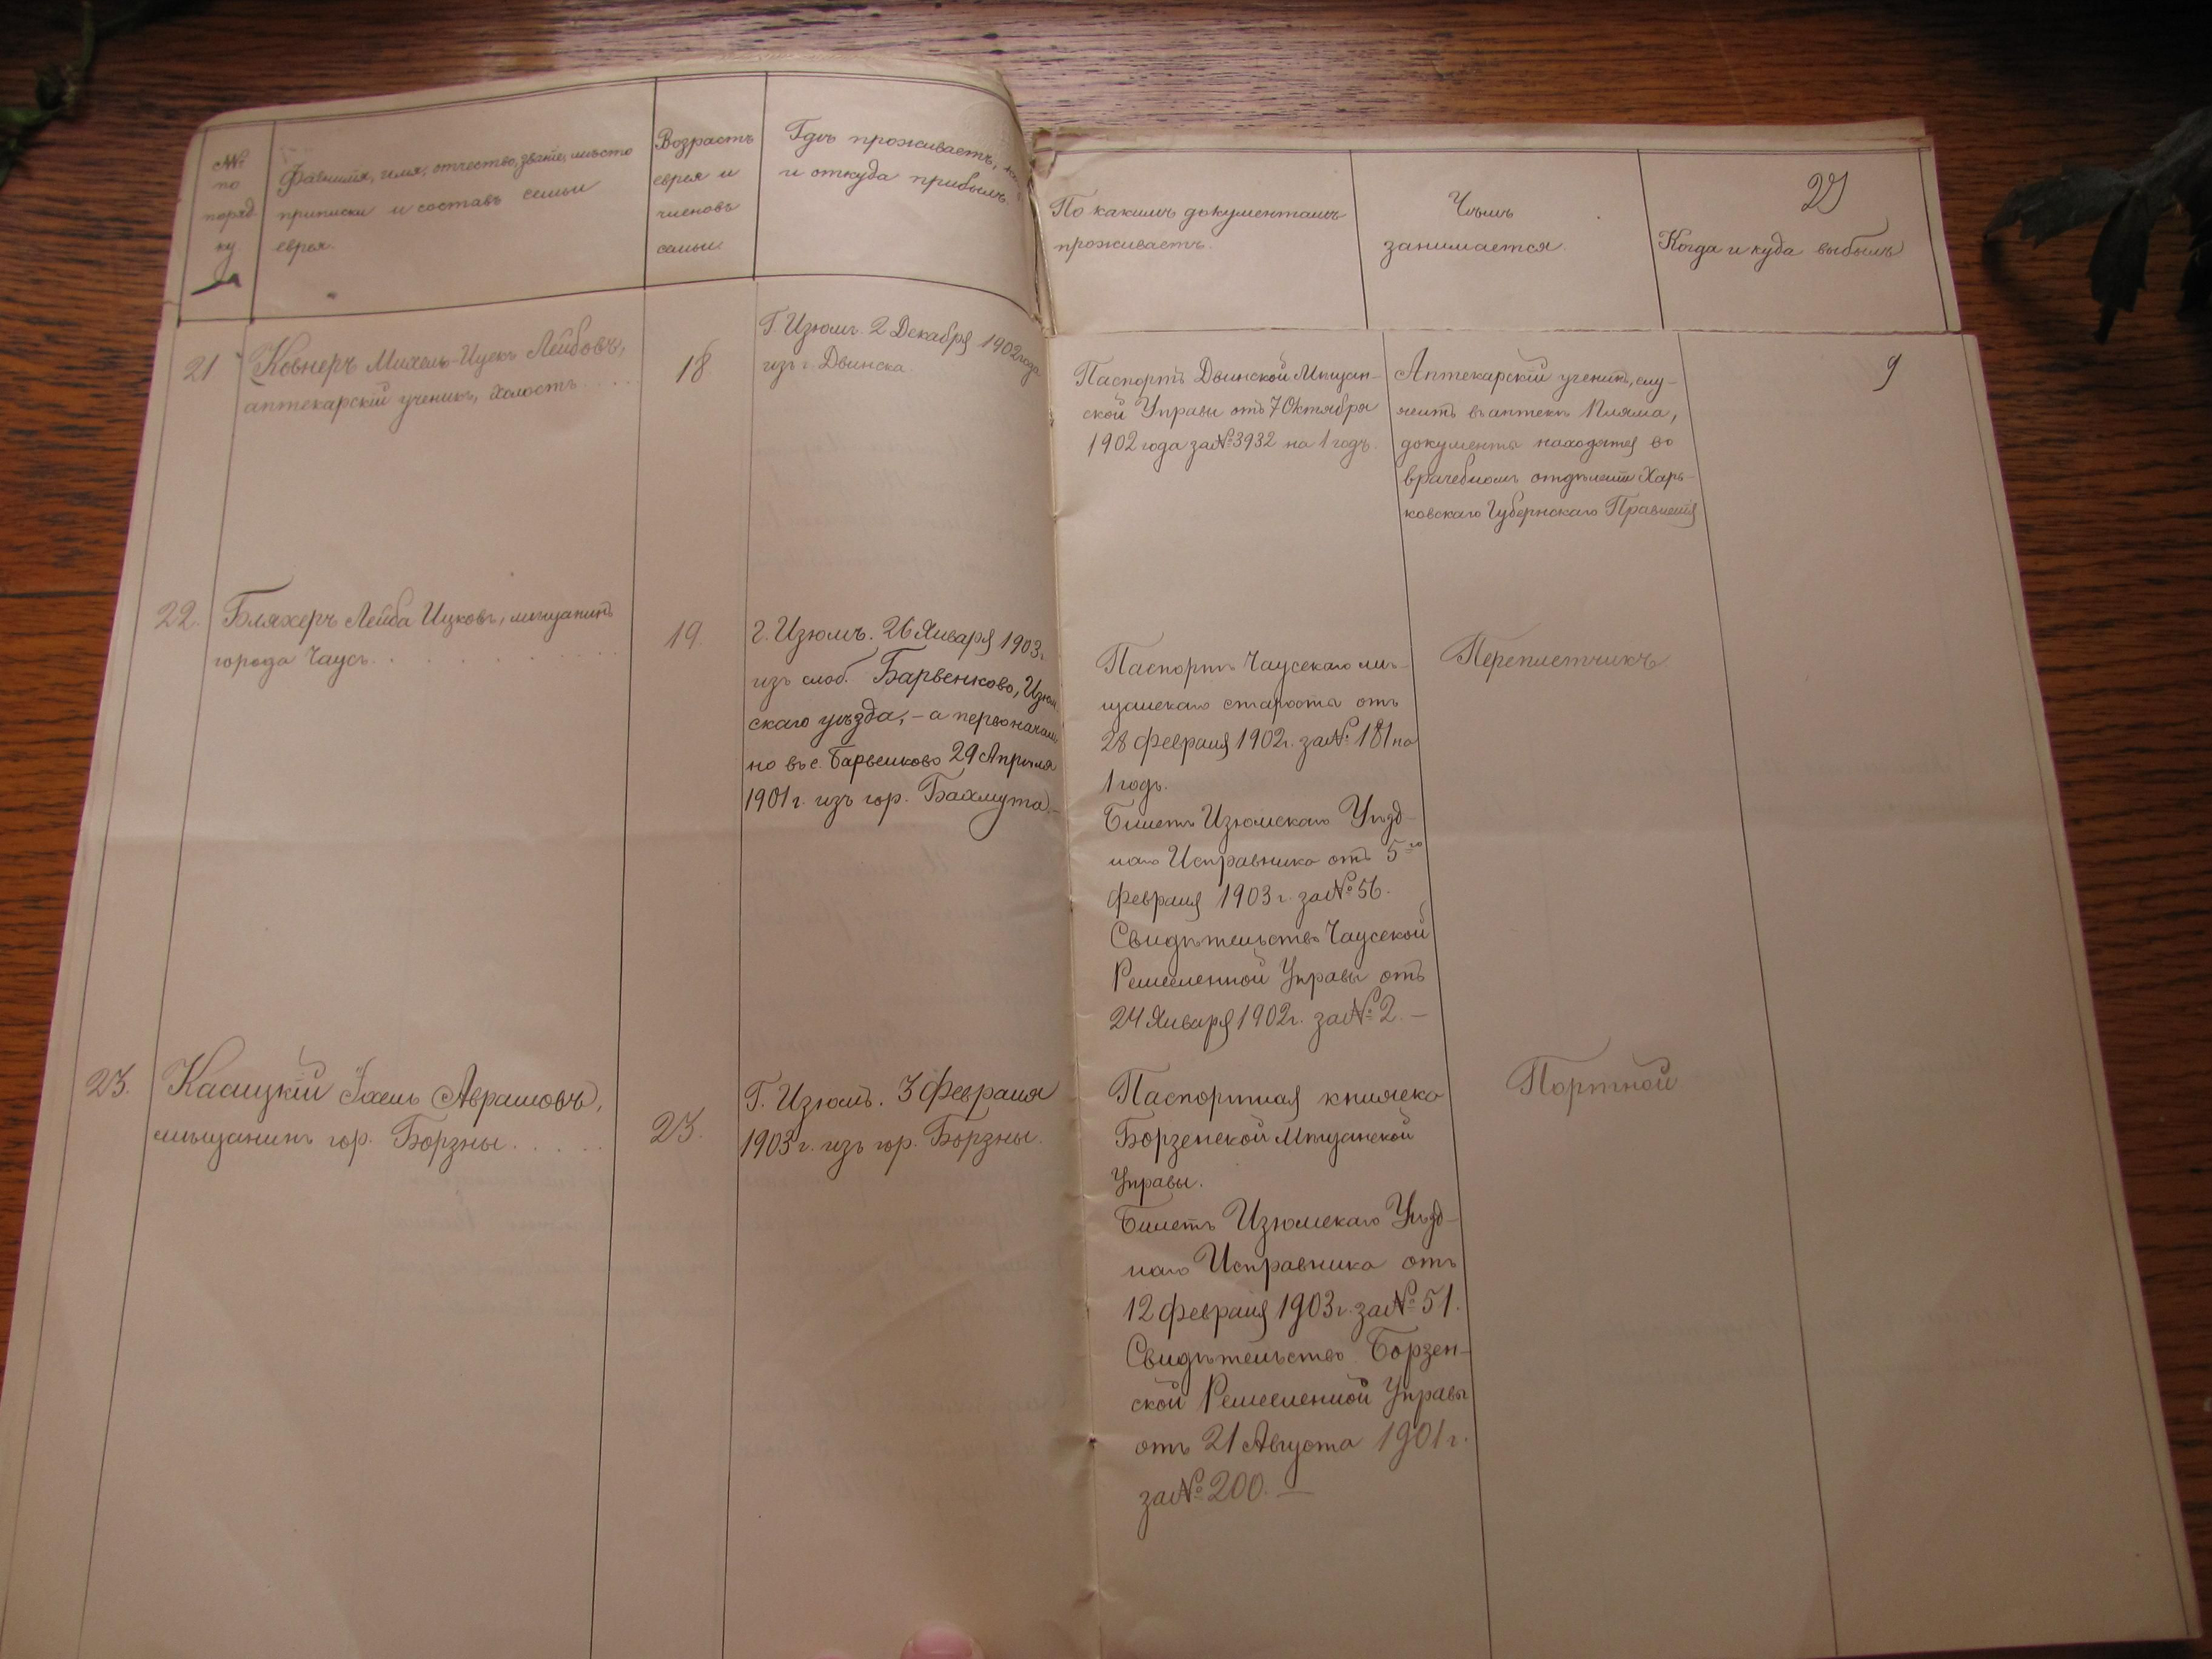 №№
по
поряд
ку.
Фамилія, имя, отчество, званіе, мѣсто
приписки и составъ семьи
еврея.
Возрастъ
еврея и
членовъ
семьи
Гдѣ проживаетъ,
и откуда прибылъ.
По какимъ документамъ
проживаетъ.
Чѣмъ
занимается.
Когда и куда выбылъ
21
Ковнеръ Михель-Ицекъ Лейбовъ,
аптекарскій ученикъ, холостъ.....
18
Г. Изюмъ. 2 Декабря 1902 года
изъ г. Двинска.
Паспортъ Двинской Мѣщан-
ской Управы отъ 7 Октября
1902 года за № 3932 на 1 годъ.
Аптекарскій ученикъ, слу-
житъ въ аптекѣ
документы находятся во
врачебномъ отдѣленіи Харь-
ковскаго Губернскаго Правленія
9
22.
Бляхеръ Лейба Ицковъ, мѣщанинъ
города Чаусъ.........
19.
г. Изюмъ. 26 Января 1903 г.
изъ слоб. Барвенково, Изюм
скаго уѣзда, - а первоначаль
но въ с. Барвенково 29 Апрѣля
1901 г. изъ гор. Бахмута.-
Паспортъ Чаусскаго мѣ-
щанскаго старосты отъ
28 февраля 1902 г. за № 181 на
1 годъ.
Билетъ Изюмскаго Уѣзд-
наго Исправника отъ 5го
февраля 1903 г. за № 56.
Свидѣтельство Чаусской
Ремесленной Управы отъ
24 Января 1902 г. за № 2. -
Переплетчикъ
23.
Касицкій Іохель Аврамовъ,
мѣщанинъ гор. Борзны.....
23.
Г. Изюмъ. 3 Февраля
1903 г. изъ гор. Борзны.
Паспортная книжка
Борзенской Мѣщанской
Управы.
Билетъ Изюмскаго Уѣзд-
наго Исправника отъ
12 февраля 1903 г. за № 51.
Свидѣтельство Борзен-
ской Ремесленной Управы
отъ 21 Августа 1901 г.
за № 200. -
Портной